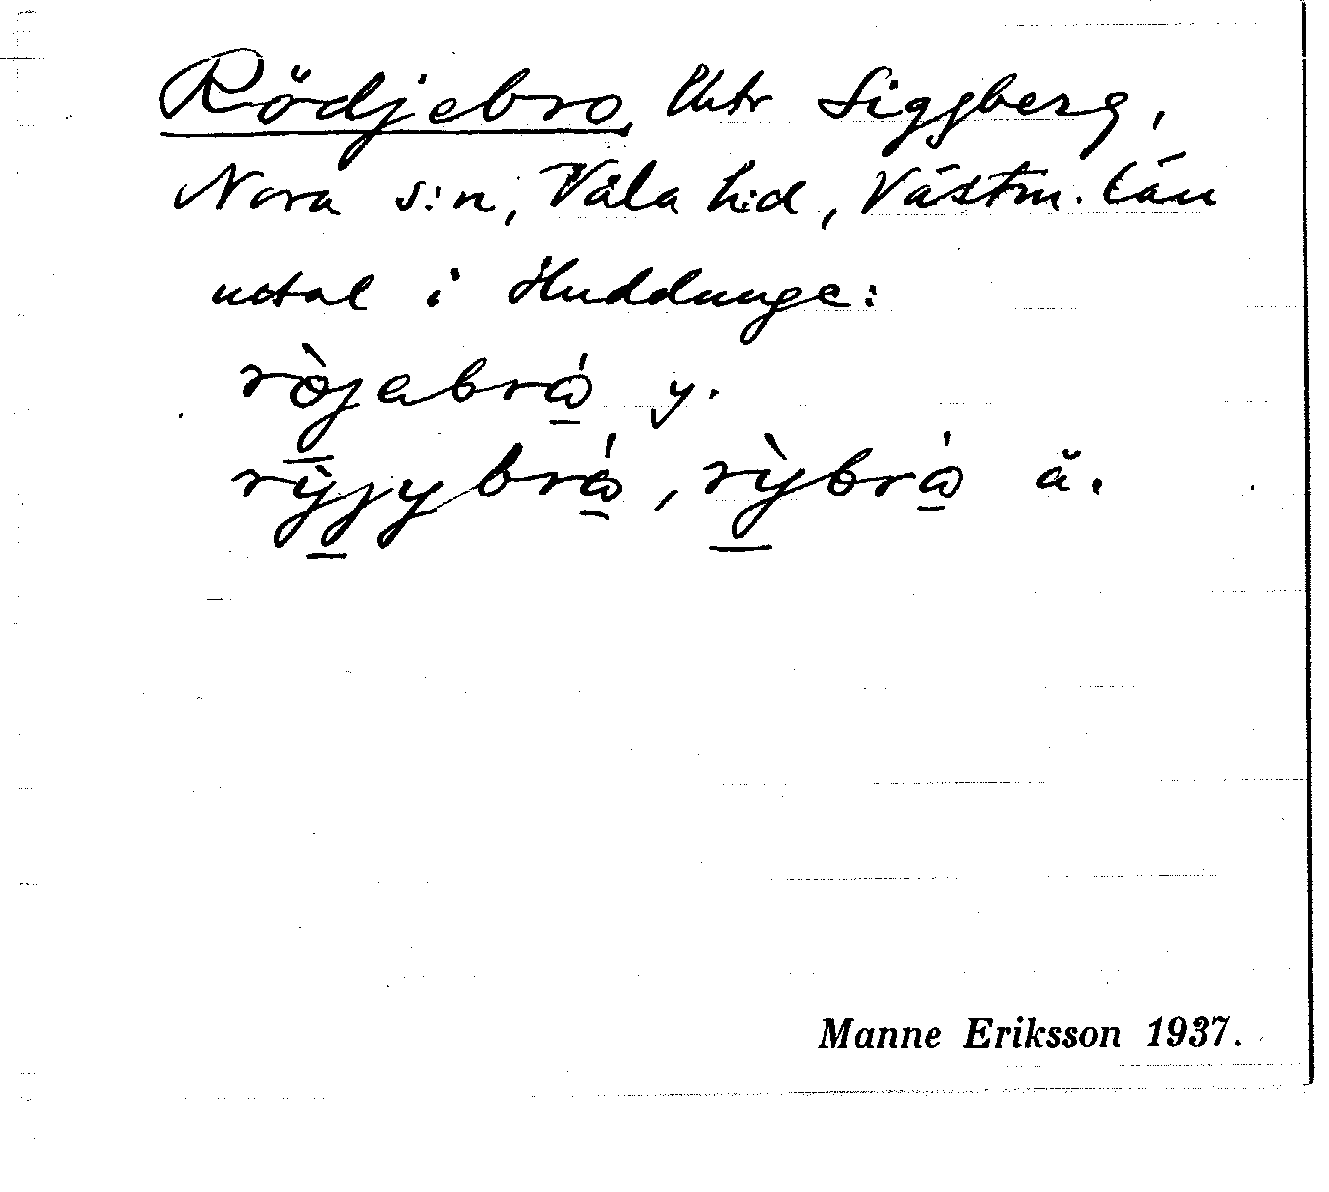 Rödjebro, Uutr Siggberg,
Nora s:n, Våla h:d, Västm. län
uttal i Huddunge:
rö̀jabró y.
rỳjybró, rỳbró ä.
Manne Eriksson 1937.